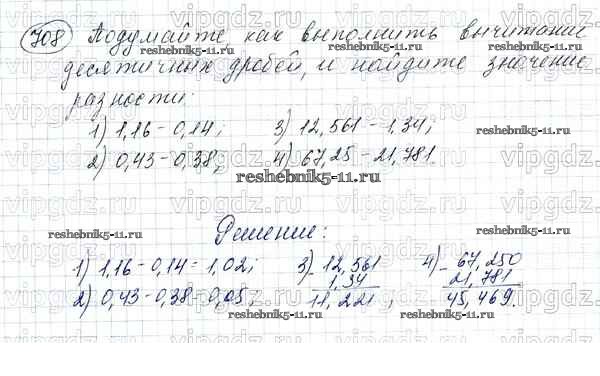 708 Подумайте как выполнить вычитание
десятичных дробей, и найдите значение
разности:
1) 1,16 - 0,14; 3) 12,561 - 1,34;
2) 0,43 - 0,38; 4) 67,25 - 21,781.
reshebnik5-11.ru
Решение:
1) 1,16 - 0,14 = 1,02; 3) - 12,561 4) - 67,250
1,34 21,781
2) 0,43 - 0,38 = 0,05; 11,221, 45,469.